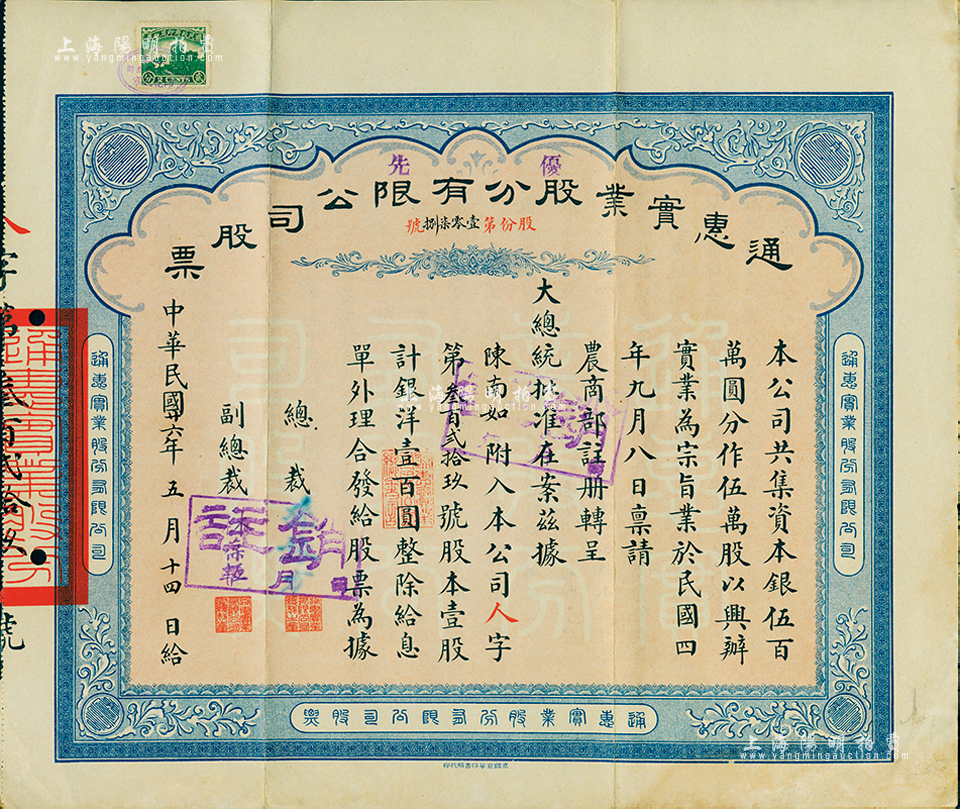 上海陽明拍賣
www.yangmingauction.com
優先
通惠實業股分有限公司股票
股份第壹零柒捌號
本公司共集資本銀伍百
萬圓分作伍萬股以興辦
實業為宗旨業於民國四
年九月八日稟請
農商部註册轉呈
大總統批准在案茲據
陳南如附入本公司人字
第叁百貳拾玖號股本壹股
計銀洋壹百圓整除給息
單外理合發給股票為據
總裁
副總裁
中華民國六年五月十四日給
註銷
通惠實業股份有限公司
通惠實業股份有限公司
通惠實業股份有限公司股票
人字第叁百貳拾玖號
上海陽明拍賣
www.yangmingauction.com
上海陽明拍賣
www.yangmingauction.com